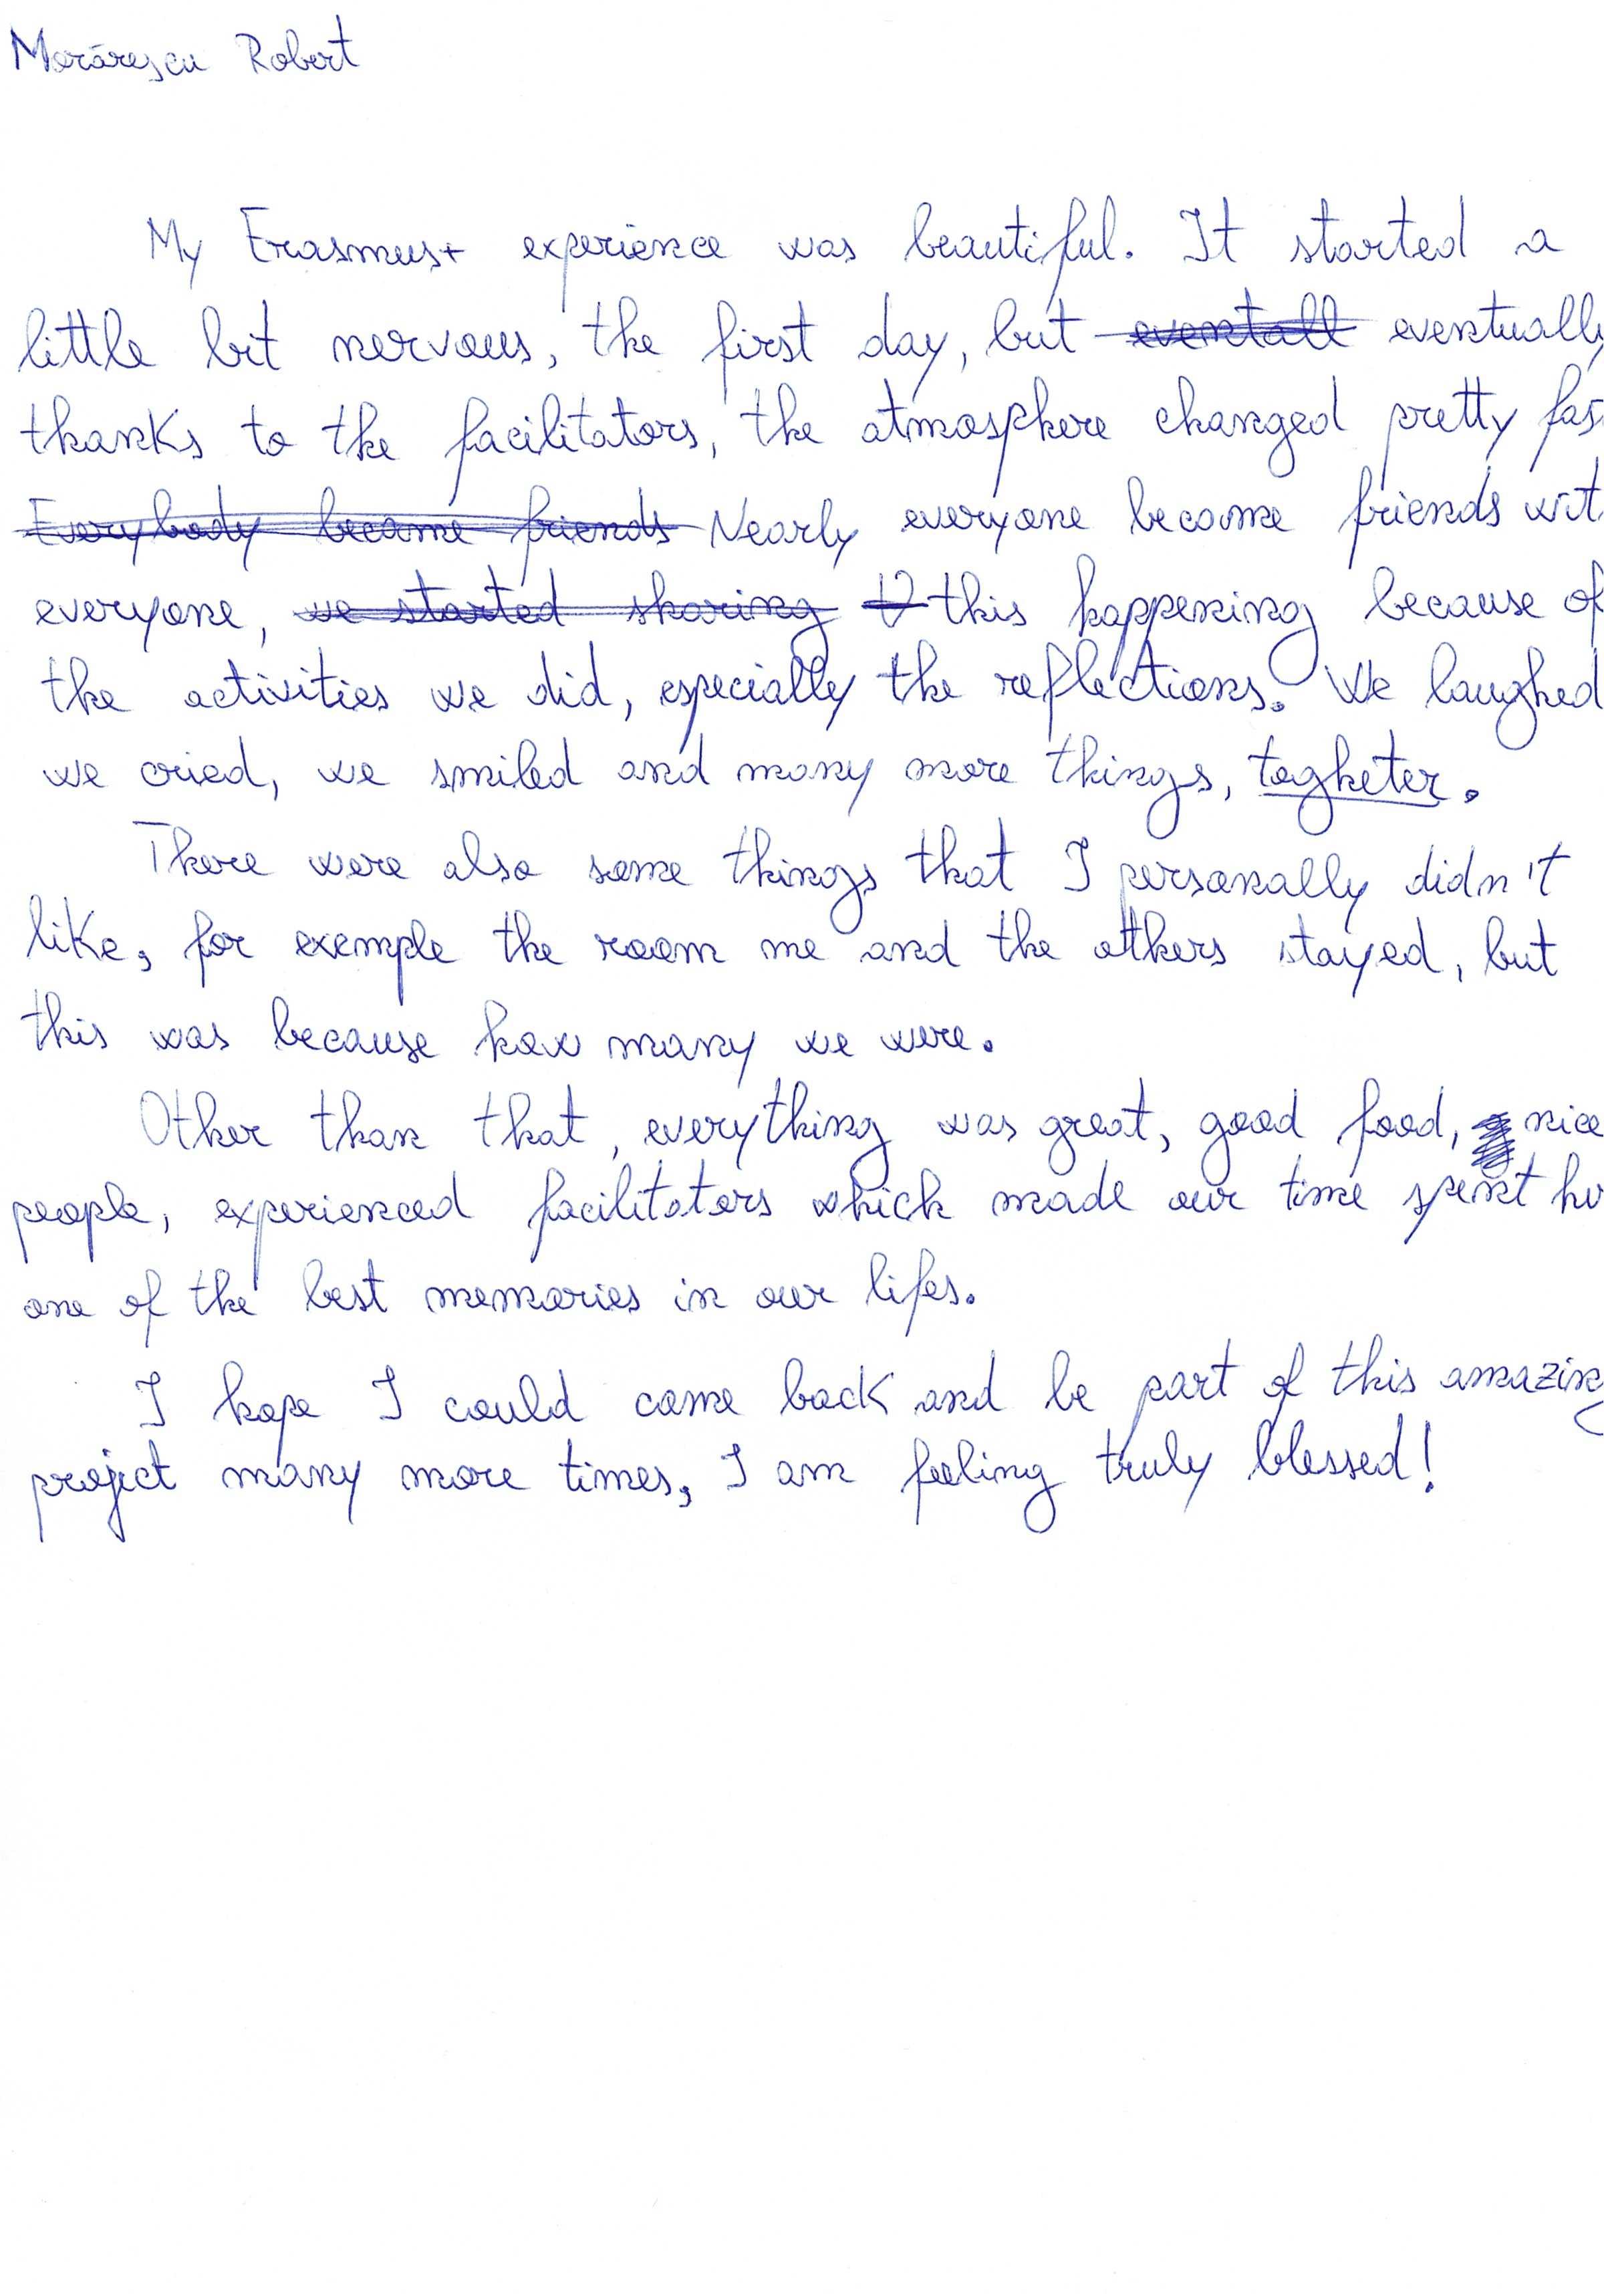 Morărescu Robert
My Erasmus+ experience was beautiful. It started a
little bit nervous, the first day, but eventall eventually
thanks to the facilitators, the atmosphere changed pretty fas
Everybody became friends Nearly everyone become friends wit
everyone, we started sharing this happening because of
the activities we did, especially the reflections. We laughed
we cried, we smiled and many more things, togheter.
There were also some things that I personally didn't
like, for exemple the room me and the others stayed, but
this was because how many we were.
Other than that, everything was great, good food, nice
people, experienced facilitators which made our time spent
one of the best memories in our lifes.
I hope I could come back and be part of this amazing
project many more times, I am feeling truly blessed!